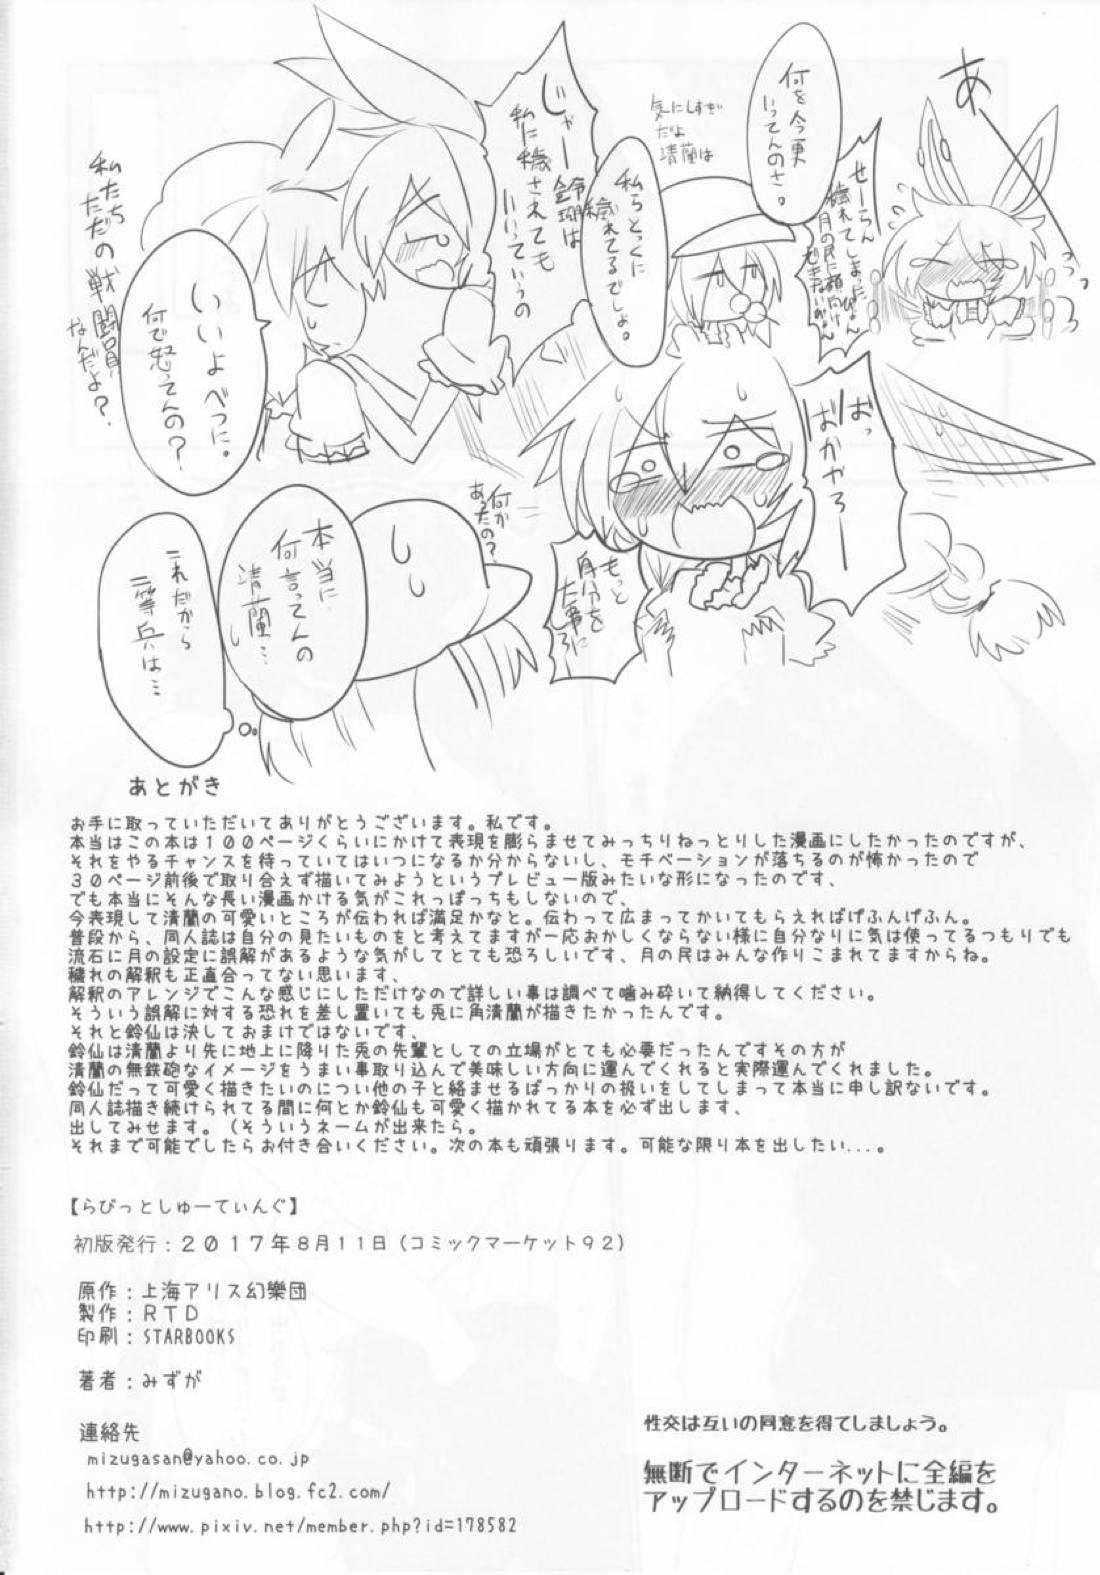 あ
せーらん
穢れてしまったぴょん
月の民に顔向け
できないぴょん
何を今更
いってんのさ。
気にしすぎ
だよ
清蘭は
私らとっくに
穢れてるでしょ。
じゃー鈴瑚は
私に穢されても
いいっていうの
いいよべつに。
何で怒ってんの？
私たち
ただの戦闘員
なんだよ？
おっ
ばかやろー
もっと
自分を
大事にしろ
何か
あったの？
本当に
何言ってんの
清蘭…
これだから
二等兵は…
あとがき
お手に取っていただいてありがとうございます。私です。
本当はこの本は１００ページくらいにかけて表現を膨らませてみっちりねっとりした漫画にしたかったのですが、
それをやるチャンスを待っていてはいつになるか分からないし、モチベーションが落ちるのが怖かったので
３０ページ前後で取り合えず描いてみようというプレビュー版みたいな形になったのです、
でも本当にそんな長い漫画かける気がこれっぽっちもしないので、
今表現して清蘭の可愛いところが伝われば満足かなと。伝わって広まってかいてもらえればげふんげふん。
普段から、同人誌は自分の見たいものをと考えてますが一応おかしくならない様に自分なりに気は使ってるつもりでも
流石に月の設定に誤解があるような気がしてとても恐ろしいです、月の民はみんな作りこまれてますからね。
穢れの解釈も正直合ってない思います、
解釈のアレンジでこんな感じにしただけなので詳しい事は調べて噛み砕いて納得してください。
そういう誤解に対する恐れを差し置いても兎に角清蘭が描きたかったんです。
それと鈴仙は決しておまけではないです、
鈴仙は清蘭より先に地上に降りた兎の先輩としての立場がとても必要だったんですその方が
清蘭の無鉄砲なイメージをうまい事取り込んで美味しい方向に運んでくれると実際運んでくれました。
鈴仙だって可愛く描きたいのについ他の子と絡ませるばっかりの扱いをしてしまって本当に申し訳ないです。
同人誌描き続けられてる間に何とか鈴仙も可愛く描かれてる本を必ず出します、
出してみせます。（そういうネームが出来たら。
それまで可能でしたらお付き合いください。次の本も頑張ります。可能な限り本を出したい...。
【らびっとしゅーてぃんぐ】
初版発行：２０１７年８月１１日（コミックマーケット９２）
原作：上海アリス幻樂団
製作：ＲＴＤ
印刷：STARBOOKS
著者：みずが
連絡先
mizugasan@yahoo.co.jp
http://mizugano.blog.fc2.com/
http://www.pixiv.net/member.php?id=178582
性交は互いの同意を得てしましょう。
無断でインターネットに全編を
アップロードするのを禁じます。